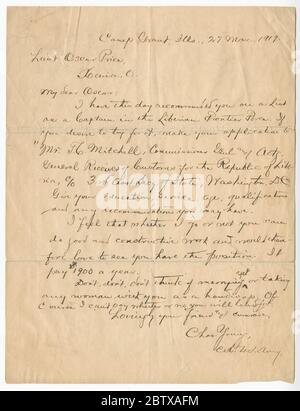 Camp Grant, Ills., 27 Mar. 1919
Lieut Oscar Price
Xenia, O.
My dear Oscar:
I have this day recommended you as a Lieut
or a Captain in the Liberian Frontier Force. If
you desire to try for it, make your application to
"Mr. H. Mitchell, Commissioner Genl & Act
General Receiver of Customs for the Republic of Libe-
ria, c/o Secretary of State, Washington D.C.
Give your education, service, age, qualifications
and any recommendations you may have.
I feel that whether I go or not you can
do good and constructive work and would there-
fore love to see you have the position. It
pays 1900 a year.
Don't, don't, don't think of marrying yet or taking
any woman with you as a handicap. Of
course I can't say whether or no you will
Loving you
Chas Young,
Col. U.S. Army
alamy
Image ID: 2BTXAFM
www.alamy.com